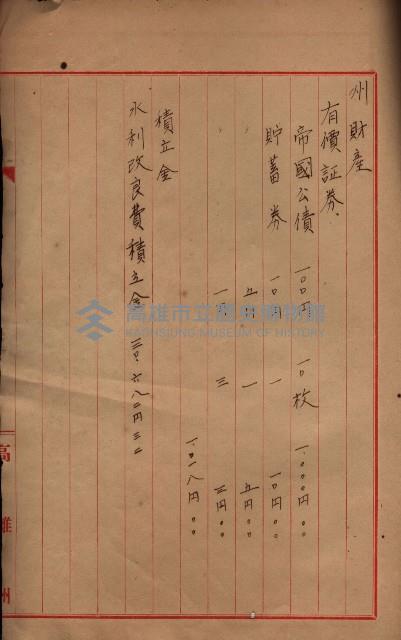 州財產
有價証券.
帝國公債 一〇〇円 一〇枚 一、〇〇〇円〇〇
貯蓄券 一〇円 一 一〇円〇〇
五円 一 五円〇〇
一円 三 三円〇〇
一、〇一八円〇〇
積立金
水利改良費積立金 三〇、六八二円三二
高雄州
高雄市立歷史博物館
KAOHSIUNG MUSEUM OF HISTORY